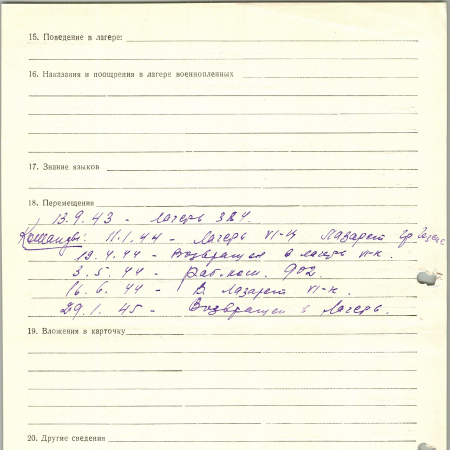 15. Поведение в лагере:
16. Наказания и поощрения в лагере военнопленных
17. Знание языков
18. Перемещения
13.9.43 - Лагерь 324.
Команды: 11.1.44 - Лагерь VI-Ц Лазарет
19.4.44 - Возвращен в лагерь VI-к.
3.5.44 - Раб. ком. 902.
16.6.44 - В лазарет VI-к.
29.1.45 - Возвращен в лагерь.
19. Вложения в карточку
20. Другие сведения